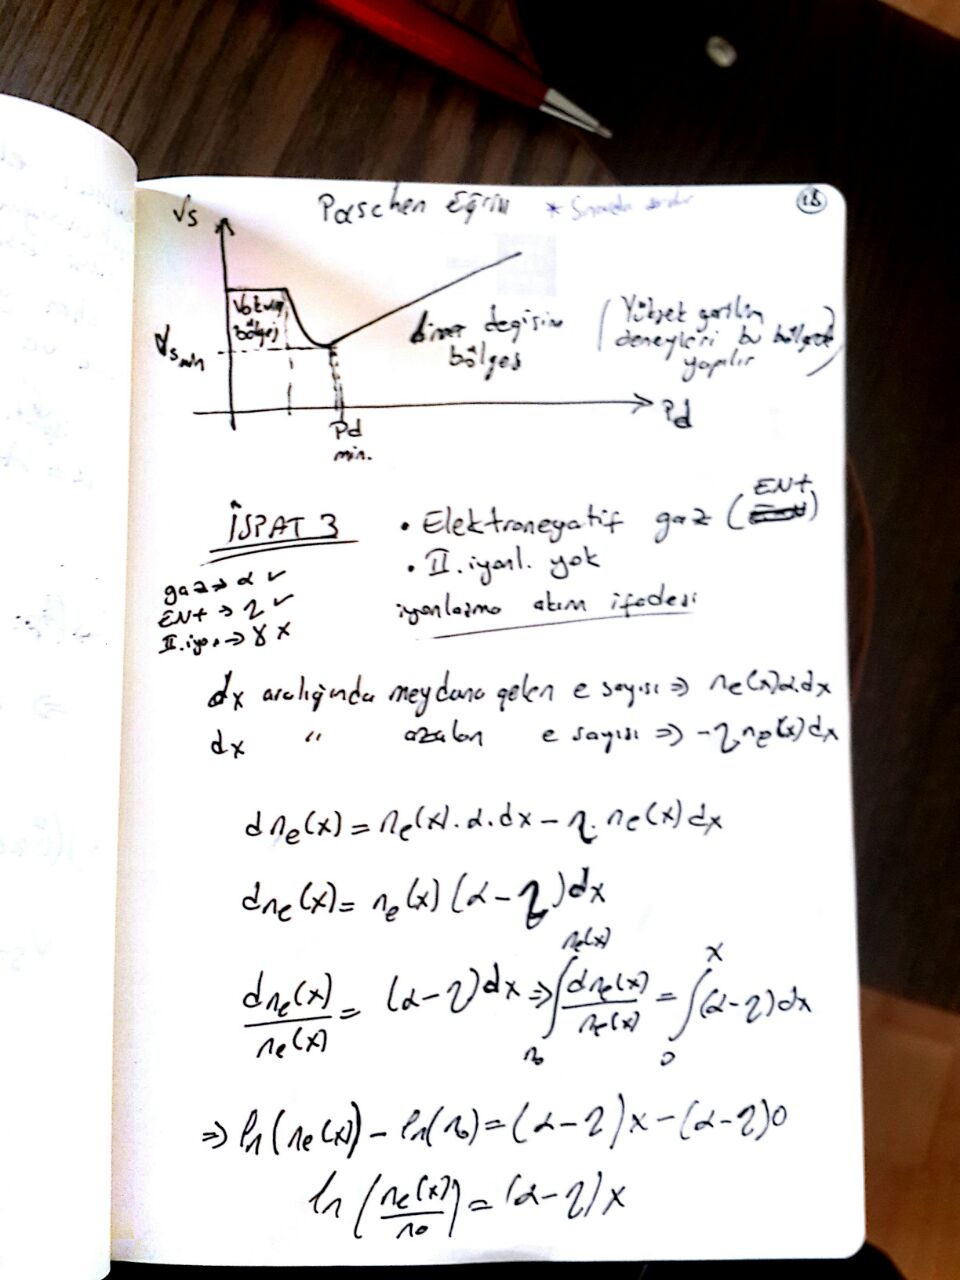 Paschen Eğrisi * Sınavda vardır 18
Vs
Vakum
bölgesi
Vs min
lineer değişim
bölgesi
(Yüksek gerilim
deneyleri bu bölgede
yapılır)
Pd
Pd
min.
İSPAT 3
• Elektronegatif gaz (EN+)
• II. iyonl. yok
iyonlaşma akım ifadesi
gaz → α ✓
EN+ → η ✓
II. iyon → γ x
dx aralığında meydana gelen e sayısı ⇒ ne(x)α.dx
dx " azalan e sayısı ⇒ -η.ne(x)dx
dne(x) = ne(x).α.dx - η. ne(x)dx
dne(x) = ne(x)(α-η)dx
dne(x)/ne(x) = (α-η)dx ⇒ ∫_{n0}^{ne(x)} dne(x)/ne(x) = ∫_0^x (α-η)dx
⇒ ln(ne(x)) - ln(n0) = (α-η)x - (α-η)0
ln(ne(x)/n0) = (α-η)x